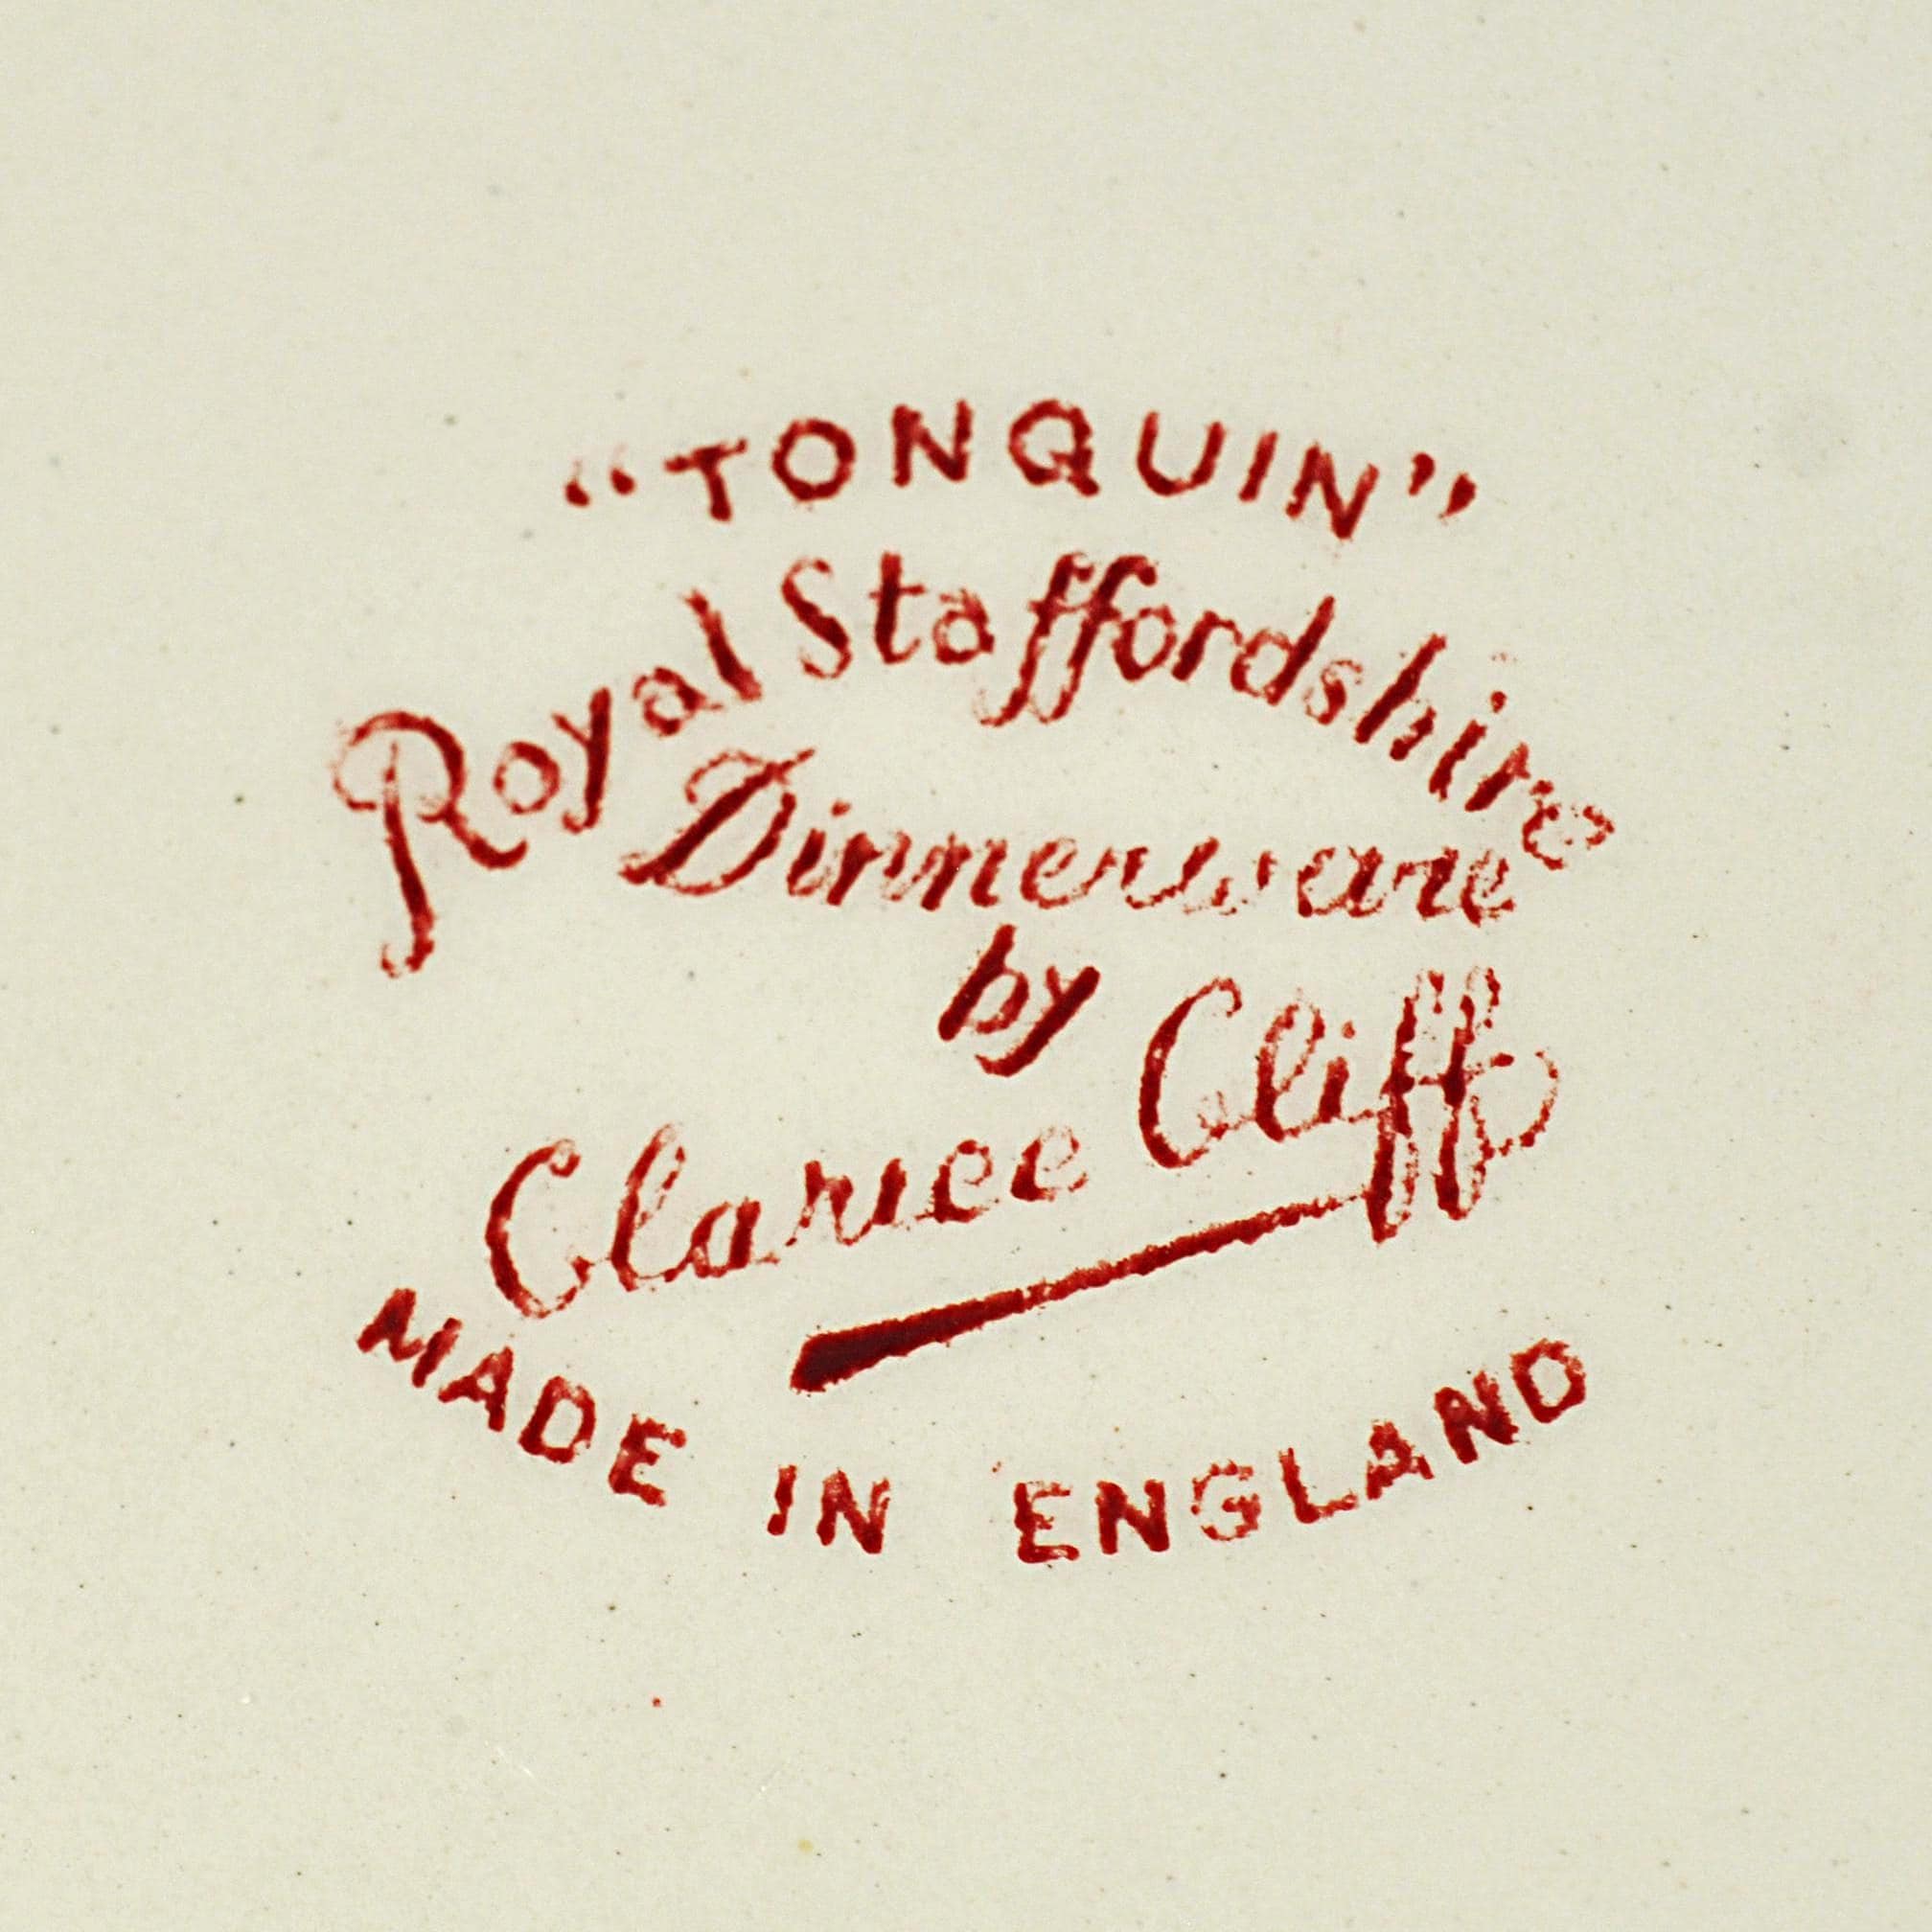 “TONQUIN”
Royal Staffordshire
Dinnerware
by
Clarice Cliff
MADE IN ENGLAND